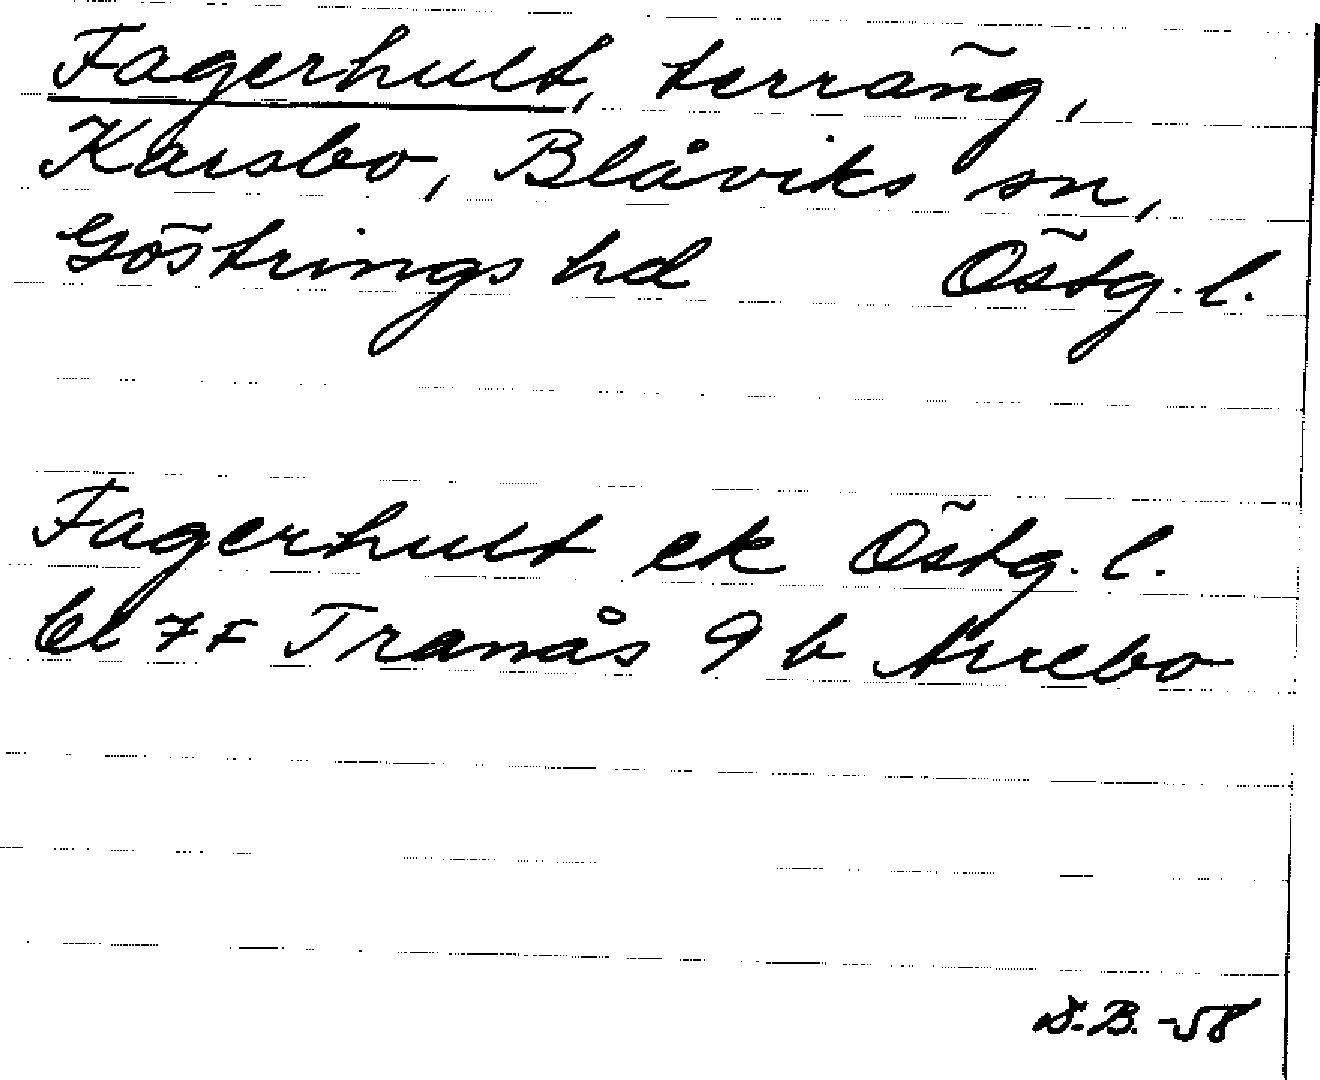 Fagerhult, terräng,
Karsbo, Blåviks sn,
Göstrings hd Östg. l.
Fagerhult ek Östg. l.
bl 7F Tranås 9 b Arrebo
S.B. -58